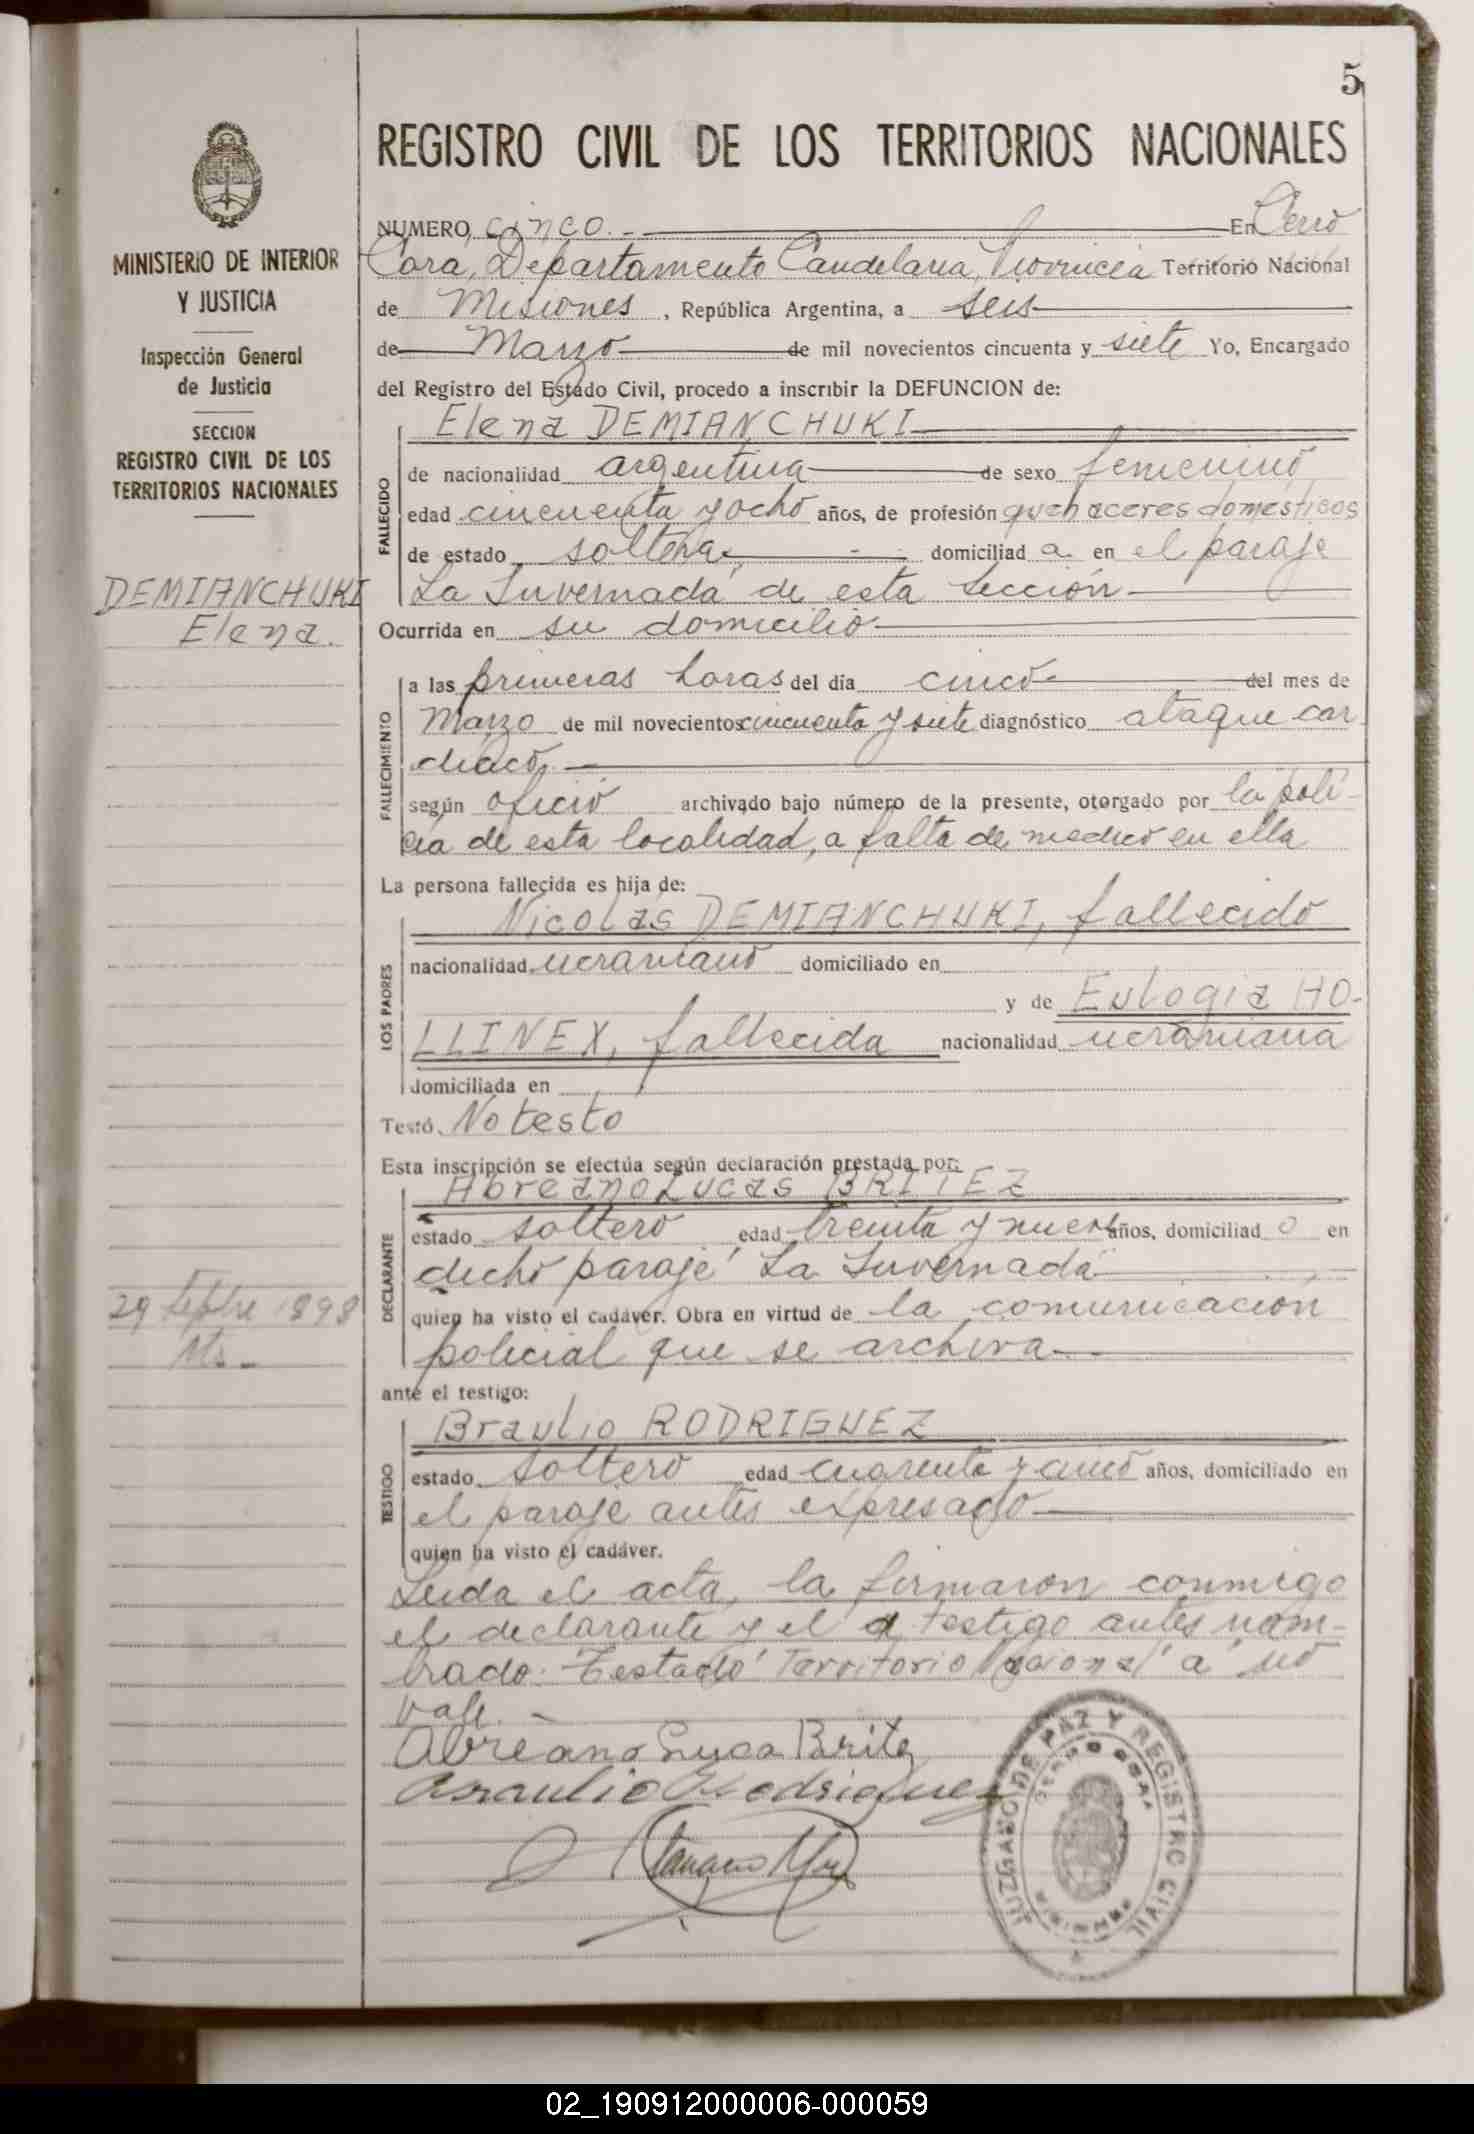 5
REGISTRO CIVIL DE LOS TERRITORIOS NACIONALES
MINISTERIO DE INTERIOR
Y JUSTICIA
Inspección General
de Justicia
SECCION
REGISTRO CIVIL DE LOS
TERRITORIOS NACIONALES
DEMIANCHUKI
Elena.
29 Septbre 1898
NUMERO cinco.- En Cerro
Cora, Departamento Candelaria, Provincia Territorio Nacional
de Misiones, República Argentina, a seis
de Marzo de mil novecientos cincuenta y siete Yo, Encargado
del Registro del Estado Civil, procedo a inscribir la DEFUNCION de:
FALLECIDO
Elena DEMIANCHUKI
de nacionalidad argentina de sexo femenino
edad cincuenta y ocho años, de profesión quehaceres domesticos
de estado soltera, domiciliad a en el paraje
La Invernada de esta Sección
Ocurrida en su domicilio
FALLECIMIENTO
a las primeras horas del día cinco del mes de
Marzo de mil novecientos cincuenta y siete diagnóstico ataque car-
diaco.
según oficio archivado bajo número de la presente, otorgado por la poli-
cia de esta localidad, a falta de medico en ella
La persona fallecida es hija de:
LOS PADRES
Nicolas DEMIANCHUKI, fallecido
nacionalidad ucraniano domiciliado en
y de Eulogia HO-
LLINEX, fallecida nacionalidad ucraniana
domiciliada en
Testó No testo
Esta inscripción se efectúa según declaración prestada por:
DECLARANTE
Abreano Lucas BRITEZ
estado soltero edad treinta y nueve años, domiciliad o en
dicho paraje La Invernada
quien ha visto el cadáver. Obra en virtud de la comunicación
policial que se archiva
ante el testigo:
TESTIGO
Braulio RODRIGUEZ
estado soltero edad cuarenta y cinco años, domiciliado en
el paraje antes expresado
quien ha visto el cadáver.
Leida el acta, la firmaron conmigo
el declarante y el a testigo antes nom-
brado. Testado "Territorio Nacional" "a" no
vale.-
Abreano Luca Britez
Braulio Rodriguez
JUZGADO DE PAZ Y REGISTRO CIVIL
CERRO CORA
MISIONES
02_190912000006-000059